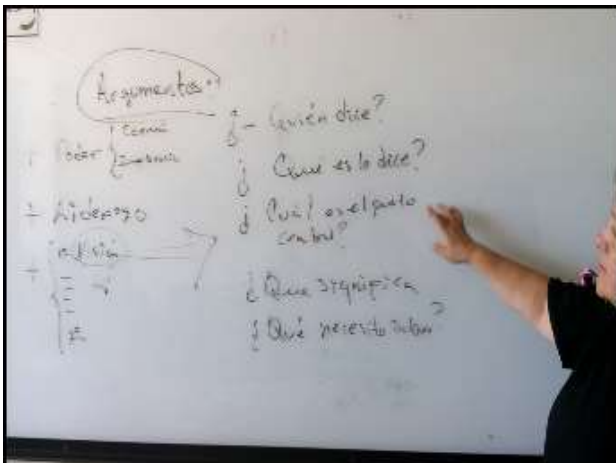 Argumentos
Poder
+ Liderazgo
+
¿- Quién dice?
¿ Qué es lo dice?
¿ Cuál es el punto
central?
¿ Que significa
¿ Qué necesito saber?